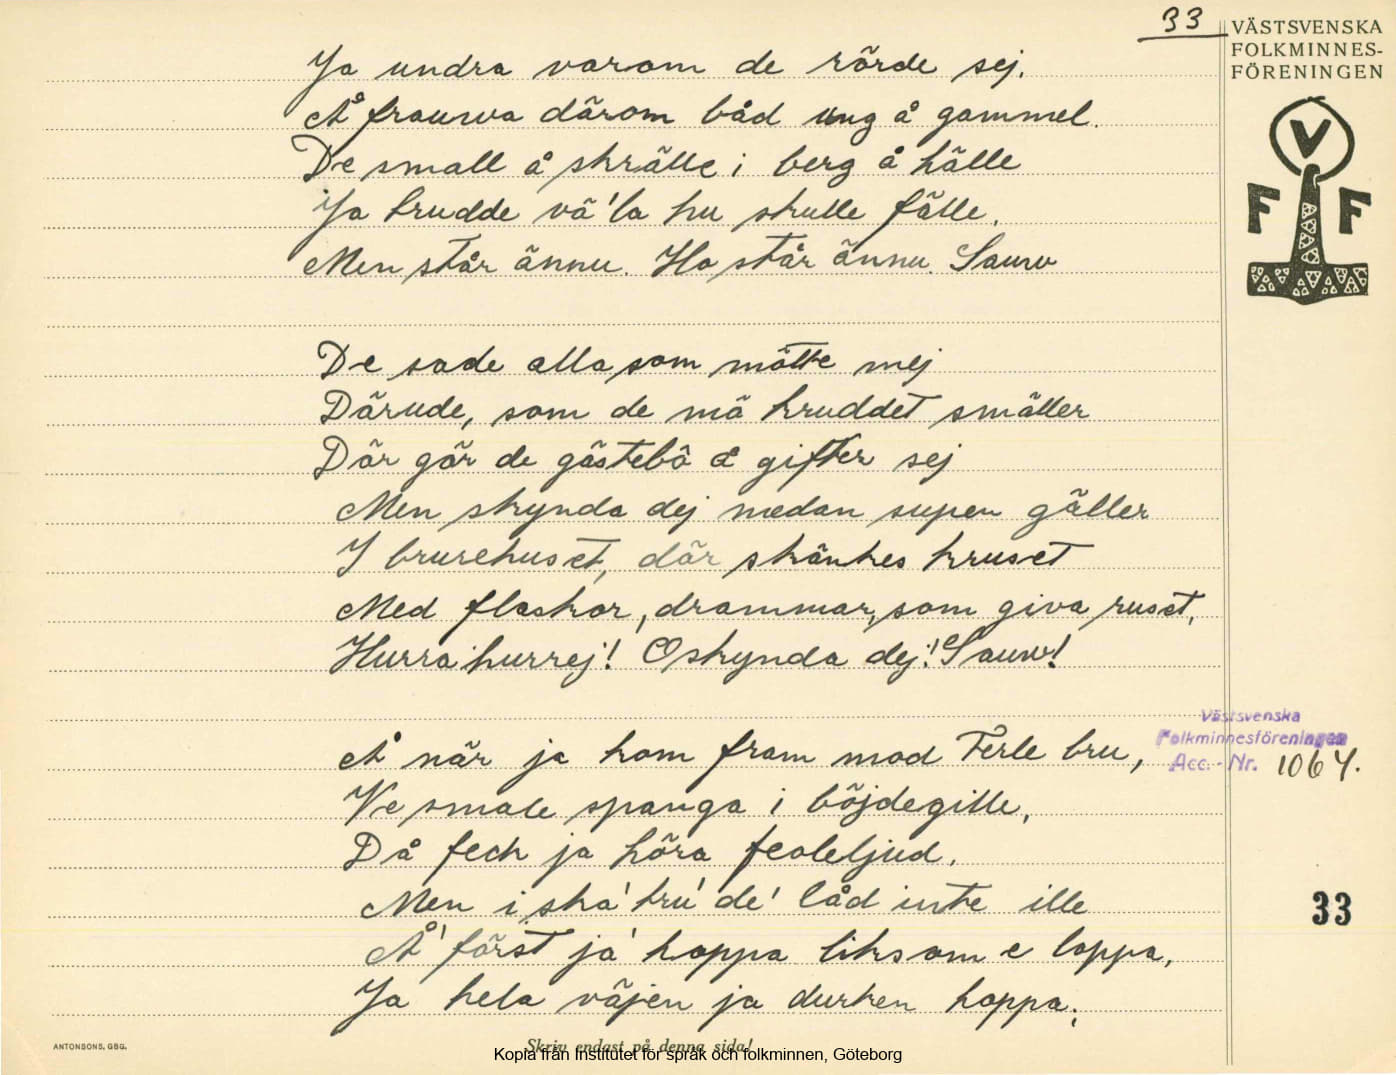 33
VÄSTSVENSKA
FOLKMINNES-
FÖRENINGEN
V
F F
Ja undra varom de rörde sej.
Å frauwa därom båd ung å gammel.
De small å skrälle i berg å hälle
Ja trudde vä'la hu skulle fälle.
Men står ännu. Ho står ännu. Sauw
De sade alla som mötte mej
Därude, som de mä kruddet smäller
Där gör de gästebö å gifter sej
Men skynda dej medan supen gäller
I brurehuset, där skänkes kruset
Med flaskor, drammar, som giva ruset,
Hurra hurrej! O skynda dej! Sauw!
Å när ja kom fram mod Ferle bru,
Ve smale spanga i böjdegille,
Då feck ja höra feoleljud.
Men i ska' tru' de' låd inte ille
Å' först ja' hoppa liksom e loppa,
Ja hela väjen ja durken hoppa.
Västsvenska
Folkminnesföreningen
Acc. - Nr. 1064.
33
ANTONSONS, GBG.
Skriv endast på denna sida!
Kopia från Institutet för språk och folkminnen, Göteborg